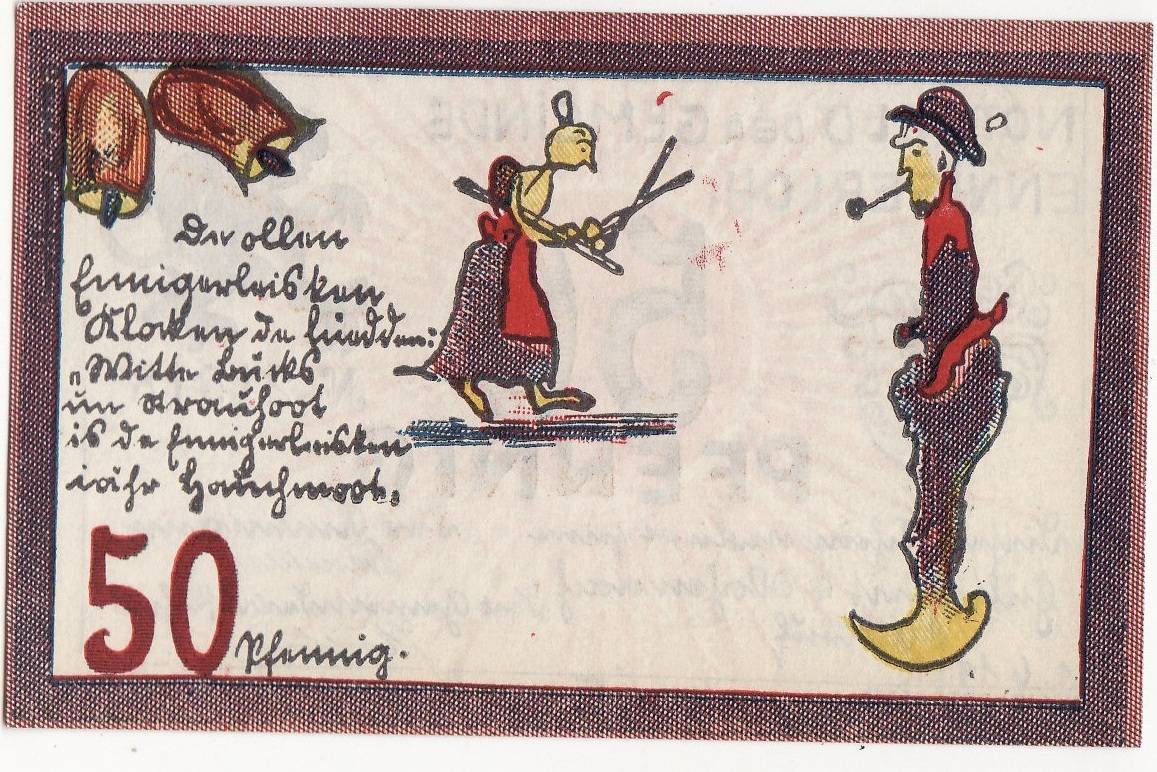 De ollen
Ennigerleisken
Klocken de lüedden:
„Witte Bücks
un Strauhoot
is de Ennigerleisken
iähr Hauchmoot.
50
Pfennig.